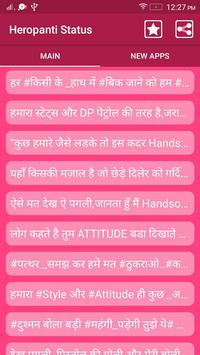 12:27 PM
Heropanti Status
MAIN NEW APPS
हर #किसी के _हाथ में #बिक जाने को हम #...
हमारा स्टेट्स और DP पेट्रोल की तरह है,जरा...
"कुछ हमारे जैसे लडके तो इस कदर Hands...
यहाँ किसकी मज़ाल है जो छेड़े दिलेर को गर्दि...
ऐसे मत देख ऐ पगली,जानता हुँ मैं Handso...
लोग कहते है तुम ATTITUDE बडा दिखाते ...
#पत्थर _समझ कर हमे मत #ठुकराओ..#क...
हमारा #Style और #Attitude ही कुछ _अ...
#दुश्मन बोला बड़ी #महंगी_पड़ेगी तुझे ये# ...